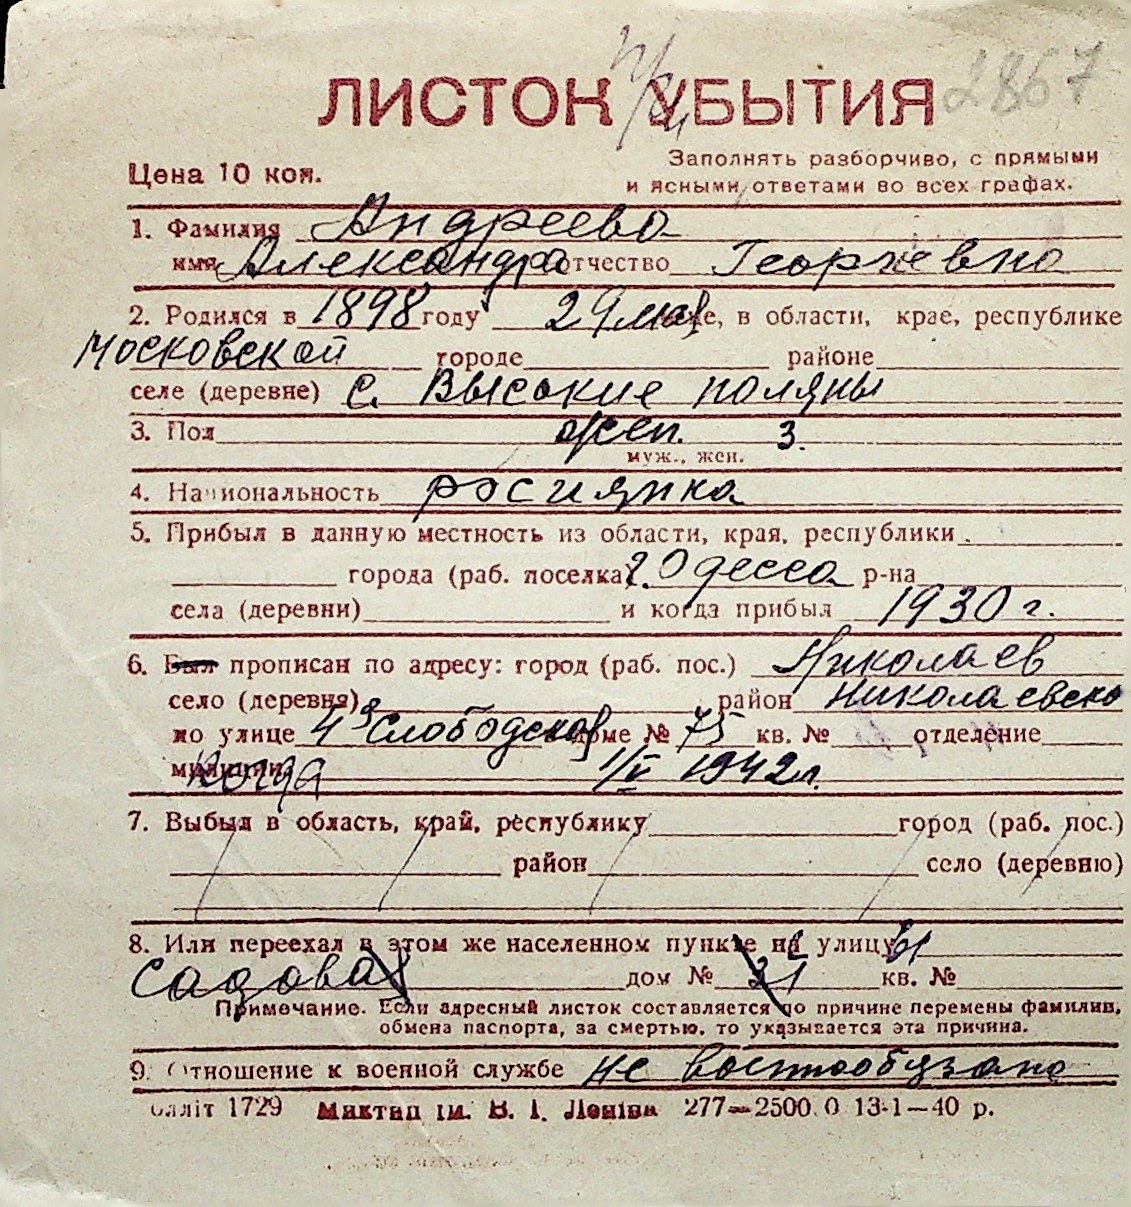 ЛИСТОК УБЫТИЯ 2867
Цена 10 коп. Заполнять разборчиво, с прямыми
и ясными ответами во всех графах.
1. Фамилия Андреева
имя Александра отчество Георгевна
2. Родился в 1898 году 29 мая е, в области, крае, республике
Московской городе районе
селе (деревне) с. Высокие поляны
3. Пол жен. 3.
муж., жен.
4. Национальность росиянка
5. Прибыл в данную местность из области, края, республики
города (раб. поселка) г. Одесса р-на
села (деревни) и когда прибыл 1930 г.
6. Был прописан по адресу: город (раб. пос.) Николаев
село (деревня) район Николаевско
по улице 4я Слободская доме № 75 кв. № отделение
милиции Когда 1/V 1942 л.
7. Выбыл в область, край, республику город (раб. пос.)
район село (деревню)
8. Или переехал в этом же населенном пункте на улицу
Садовая дом № 31 кв. №
Примечание. Если адресный листок составляется по причине перемены фамилии,
обмена паспорта, за смертью, то указывается эта причина.
9. Отношение к военной службе не воєннообузана
блліт 1729 Миктип ім. В. І. Леніна 277—2500.0 13-1—40 р.